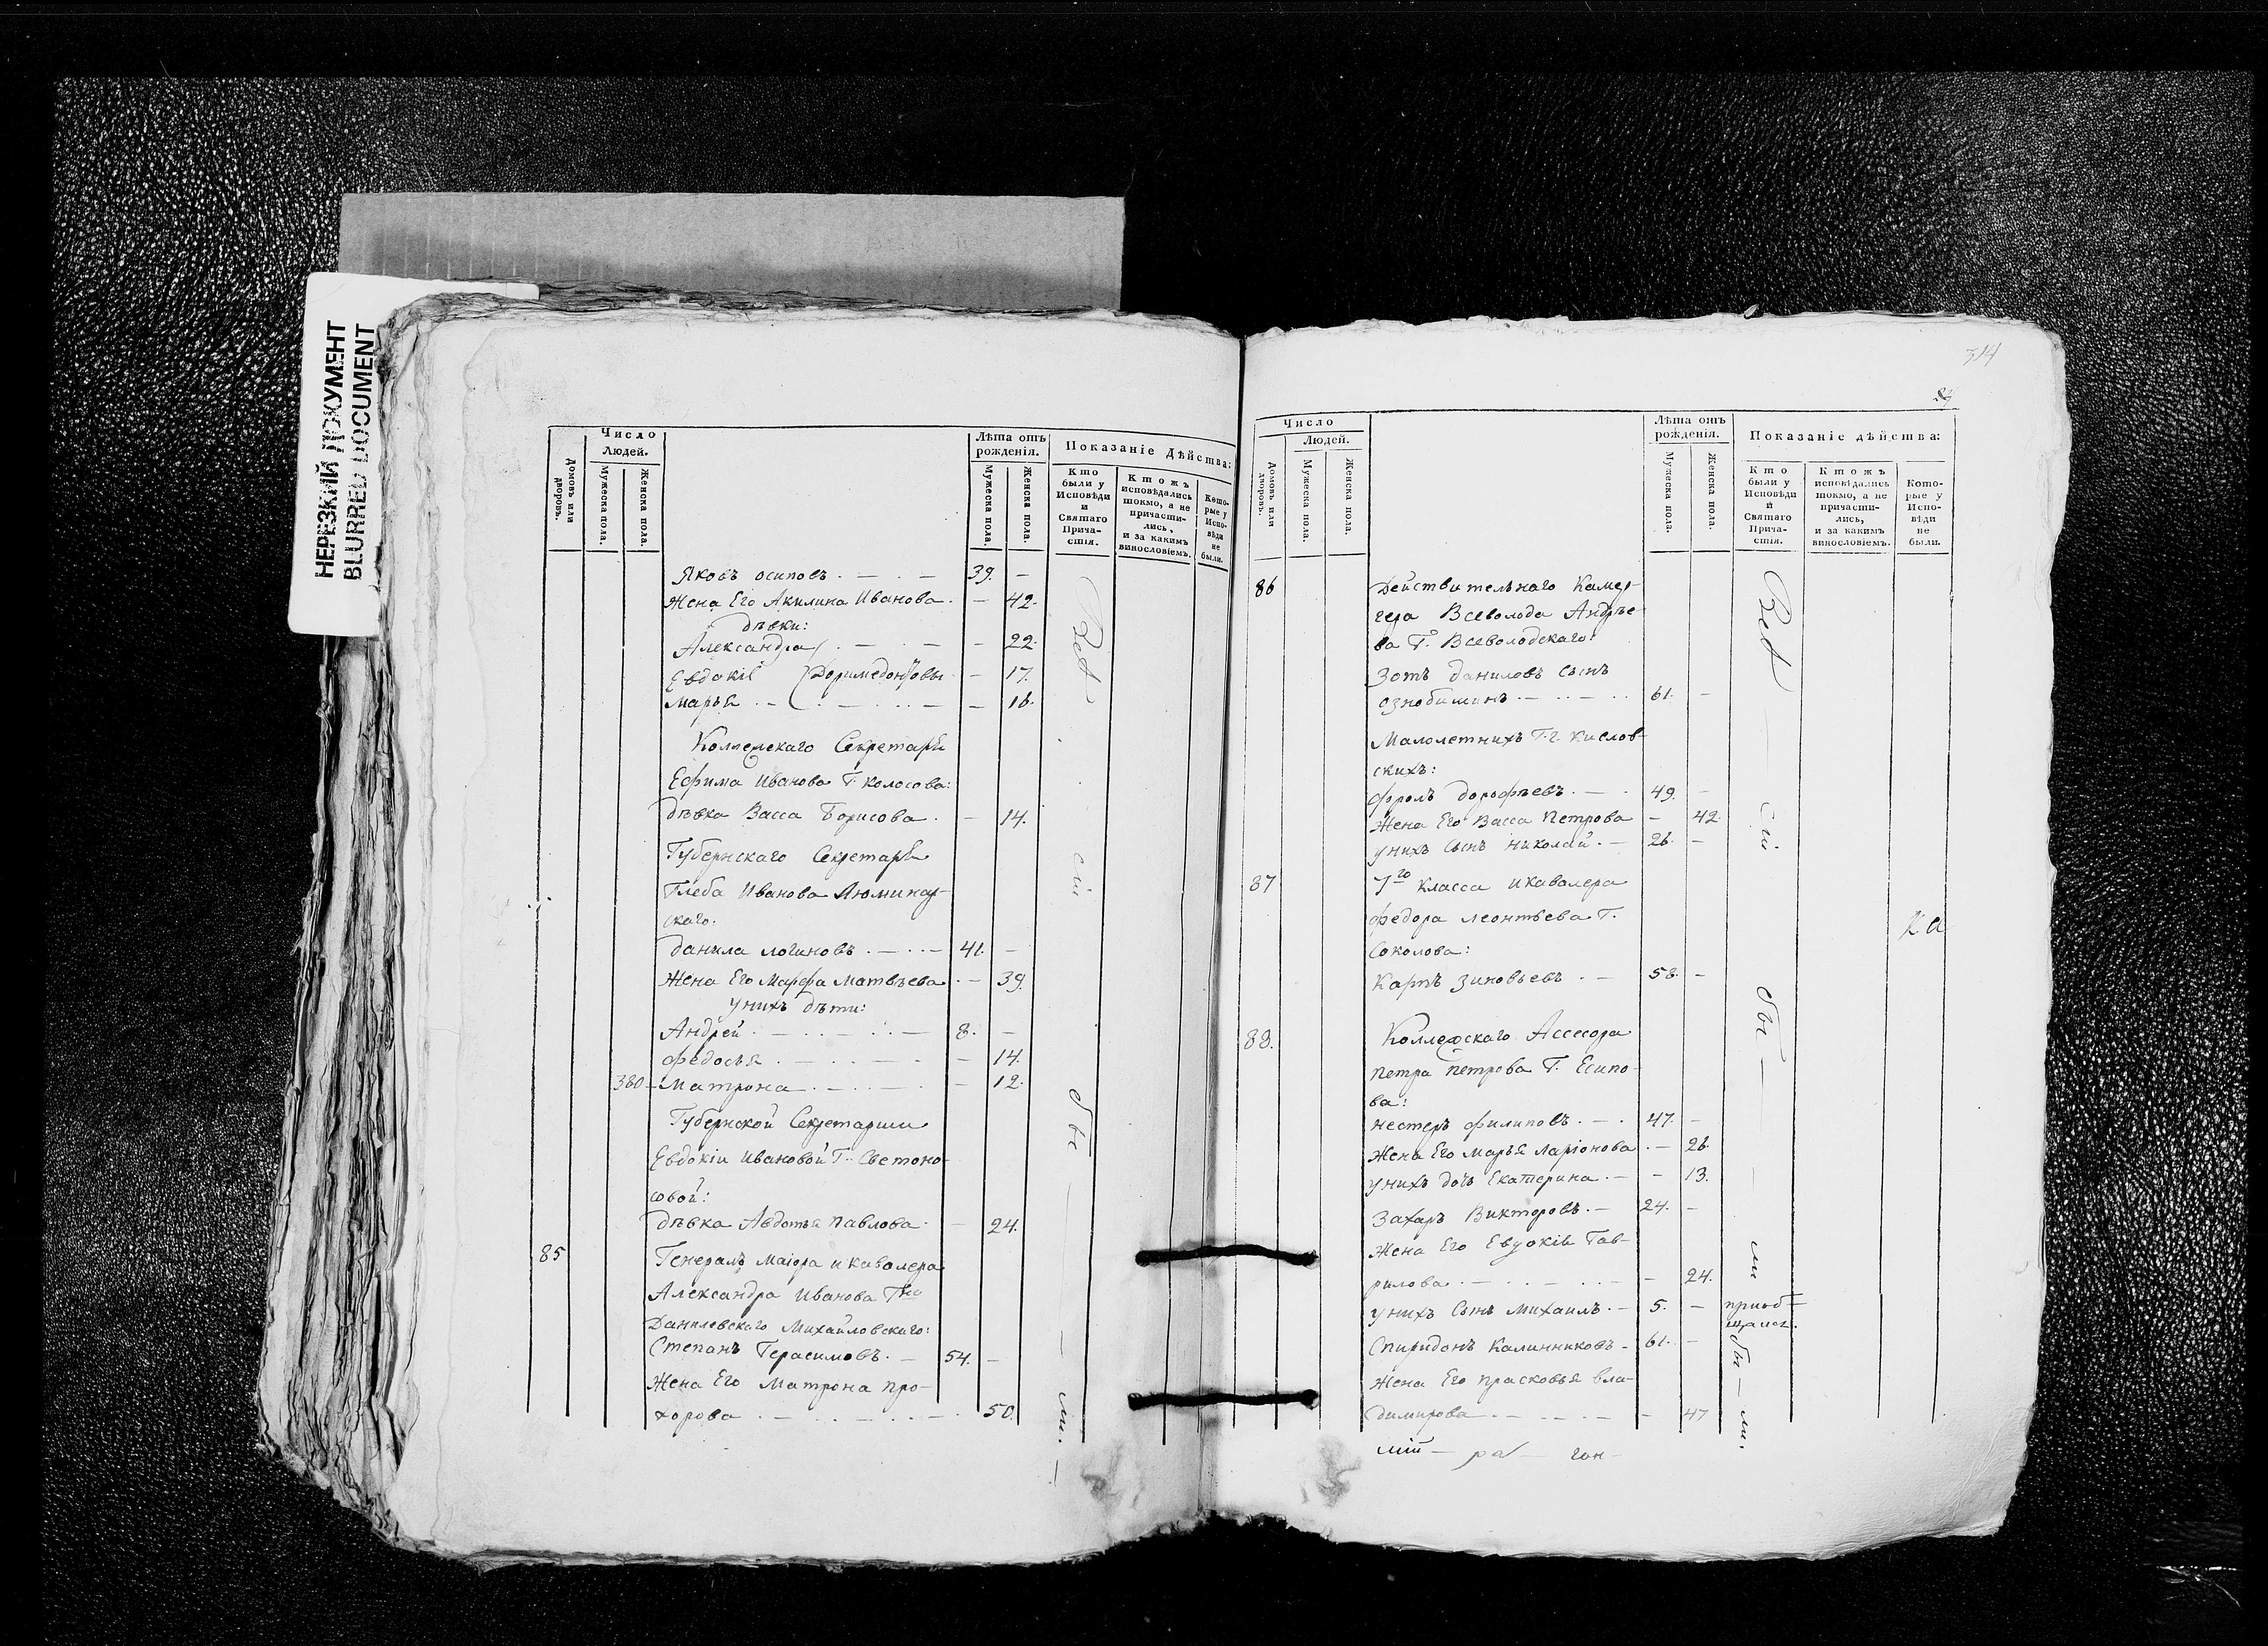 НЕРЕЗКИЙ ДОКУМЕНТ
BLURRED DOCUMENT
Число
Людей.
Домовъ или дворовъ.
Мужеска пола.
Женска пола.
Лѣта отъ рожденія.
Мужеска пола.
Женска пола.
Показаніе Дѣйства:
Кто были у Исповѣди и Святаго Прича-стія.
Ктожъ исповѣдались токмо, а не причасти-лись, и за какимъ винословіемъ.
Кото-рые у Испо-вѣди не были.
Яковъ осиповъ . — . — 39. —
Жена Его Акилина Иванова . — 42.
дѣвки:
Александра — 22.
Евдокія Доримедонтовы — 17.
Марья — 16.
Коллежскаго Секретаря
Ефима Иванова Г. Колосова:
дѣвка Васса Борисова . — 14.
Губернскаго Секретаря
Глеба Иванова
скаго:
данила логиновъ . — 41. —
Жена Его Марфа Матвѣева . — 39.
унихъ дѣти:
Андрей 8. —
Федосья — 14.
380 — Матрона — 12.
Губернской Секретарши
Евдокіи Ивановой Г. Светоно-
совой:
дѣвка Авдотья Павлова . — 24.
85 Генералъ Маіора и кавалера
Александра Иванова Гна
Данилевскаго Михайловскаго:
Степанъ Герасимовъ . — 54. —
Жена Его Матрона Про-
хорова . — 50.
Всѣ
сіи
бы
ли.
314
Число
Людей.
Домовъ или дворовъ.
Мужеска пола.
Женска пола.
Лѣта отъ рожденія.
Мужеска пола.
Женска пола.
Показаніе дѣйства:
Кто были у Исповѣди и Святаго Прича-стія.
Ктожъ исповѣдались токмо, а не причасти-лись, и за какимъ винословіемъ.
Кото-рые у Испо-вѣди не были.
86 Действительнаго Камер-
гера Всеволода Андрѣе-
ва Г. Всеволодскаго:
Зотъ даниловъ сынъ
ознобишинъ 61. —
Малолетнихъ Г.г. Кислов-
скихъ:
Фролъ дорофѣевъ . — 49. —
Жена Его Васса Петрова — 42.
унихъ Сынъ Николай . — 26. —
87 7го Класса и кавалера
Федора Леонтьева Г.
Соколова:
Карпъ Зиновьевъ . — 58. —
88. Коллежскаго Ассесора
Петра Петрова Г. Есипо-
ва:
Нестеръ Филиповъ . — 47. —
Жена Его Марья Ларіонова . — 26
унихъ дочь Екатерина . — 13.
Захаръ Викторовъ . — 24. —
Жена Его Евдокія Гав-
рилова — 24.
унихъ Сынъ Михаилъ . — 5. —
Спиридонъ Калинниковъ — 61. —
Жена Его Прасковья Вла-
димирова — 47
Всѣ
сіи
бы
ли
приоб-
щался.
бы — ли.
ка